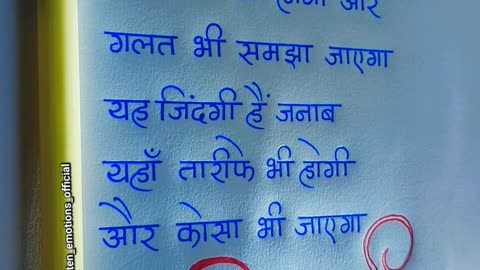 और
गलत भी समझा जाएगा
यह जिंदगी हैं जनाब
यहाँ तारीफे भी होगी
और कोसा भी जाएगा
ten_emotions_official